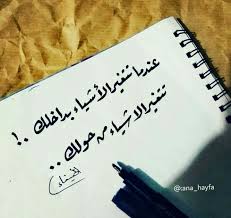 عندما تتغير الأشياء بداخلك .. !
تتغير الاشياء من حولك ..
هيفاء
@ana_hayfa